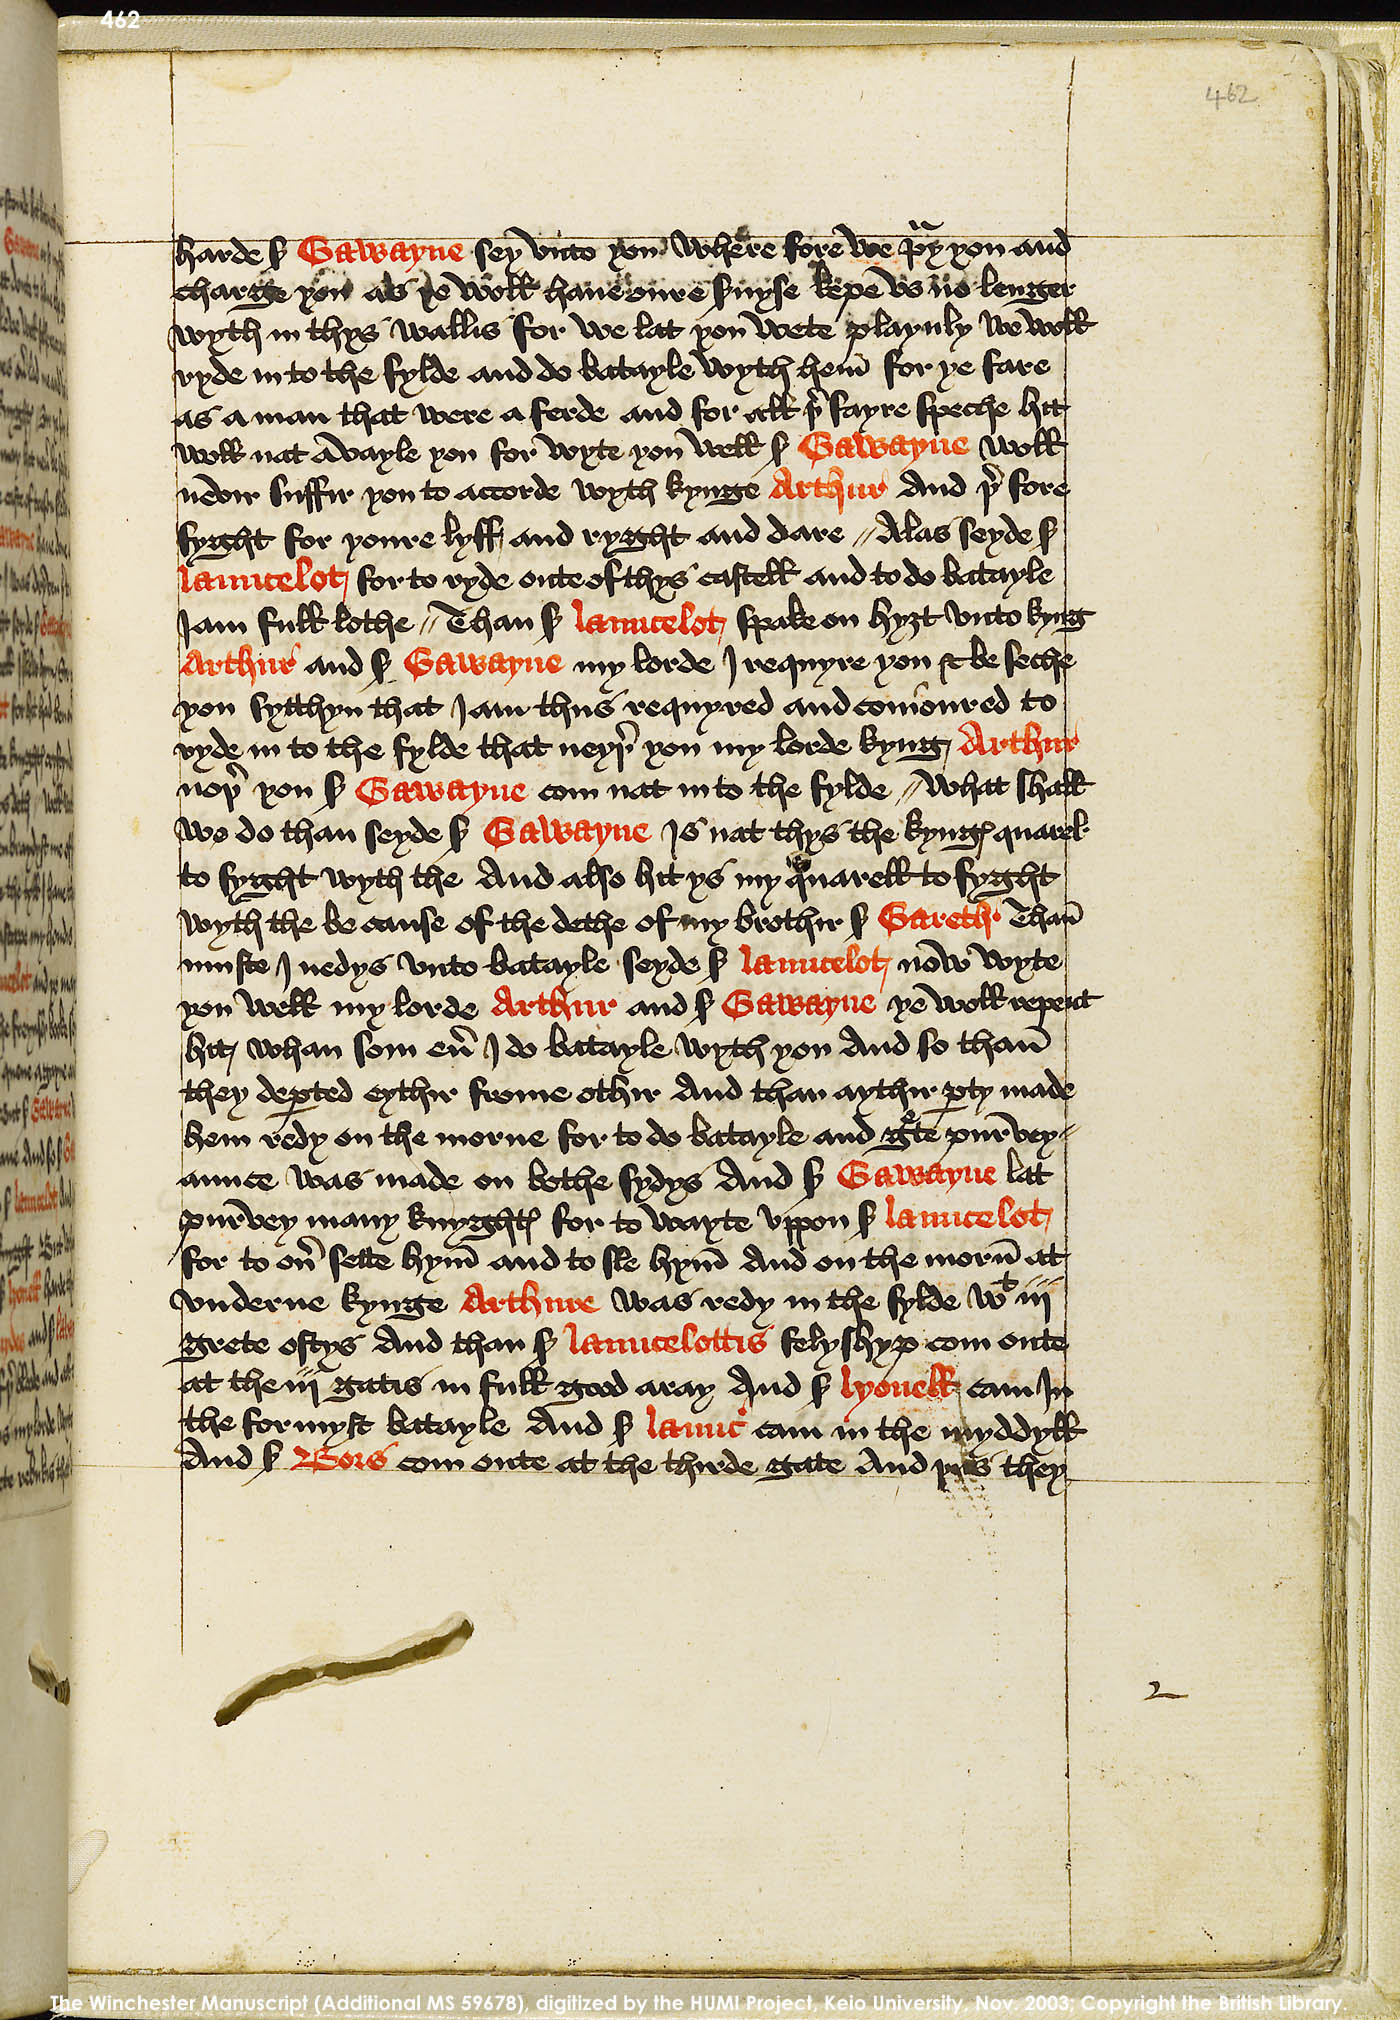 462
462
harde ẜ Gawayne sey vnto you Where fore we pͣy you and
charge you as ye woll haue oure ẜuyse kepe vs no lenger
wyth in thys wallis for we lat you wete playnly we woll
ryde in to the fylde and do batayle wyth hem̄ for ye fare
as a man that were a ferde and for all yͬ fayre speche hit
woll nat avayle you for wyte you well ẜ Gawayne woll
nevir suffir you to accorde wyth kynge Arthur And þͬ fore
fyght for youre lyff and ryght and dare // Alas seyde ẜ
launcelot for to ryde oute of thys castell and to do batayle
I am full lothe // Than ẜ launcelot spake on hyȝt vnto kyng
Arthur and ẜ Gawayne my lorde I requyre you & be seche
you sytthyn that I am thus requyred and conioured to
ryde in to the fylde that neyþͬ you my lorde kyng Arthur
noþͬ you ẜ Gawayne com nat in to the fylde // What shall
we do than seyde ẜ Gawayne Is nat thys the kyngꝭ quarel
to fyght wyth the And also hit ys my quarell to fyght
wyth the be cause of the dethe of my brothir ẜ Gareth · Than̄
muste I nedys vnto batayle seyde ẜ launcelot now wyte
you well my lorde Arthur and ẜ Gawayne ye woll repent
hit whan som eu̾ I do batayle wyth you And so than̄
they deꝑted eythir frome othir And than aythir ꝑty made
hem redy on the morne for to do batayle and gͤte purvey-
aunce was made on bothe sydys And ẜ Gawayne lat
purvey many knyghtꝭ for to wayte vppon ẜ launcelot
for to ou̾ sette hym̄ and to sle hym̄ And on the morn̄ at
vnderne kynge Arthure was redy in the fylde wͭ iii
grete ostys And than ẜ launcelottis felyshyp com oute
at the iii gatis in full good aray And ẜ lyonell cam In
the formyst batayle And ẜ launc̾ cam in the myddyll
And ẜ Bors com oute at the thirde gate And þus they
2
The Winchester Manuscript (Additional MS 59678), digitized by the HUMI Project, Keio University, Nov. 2003; Copyright the British Library.